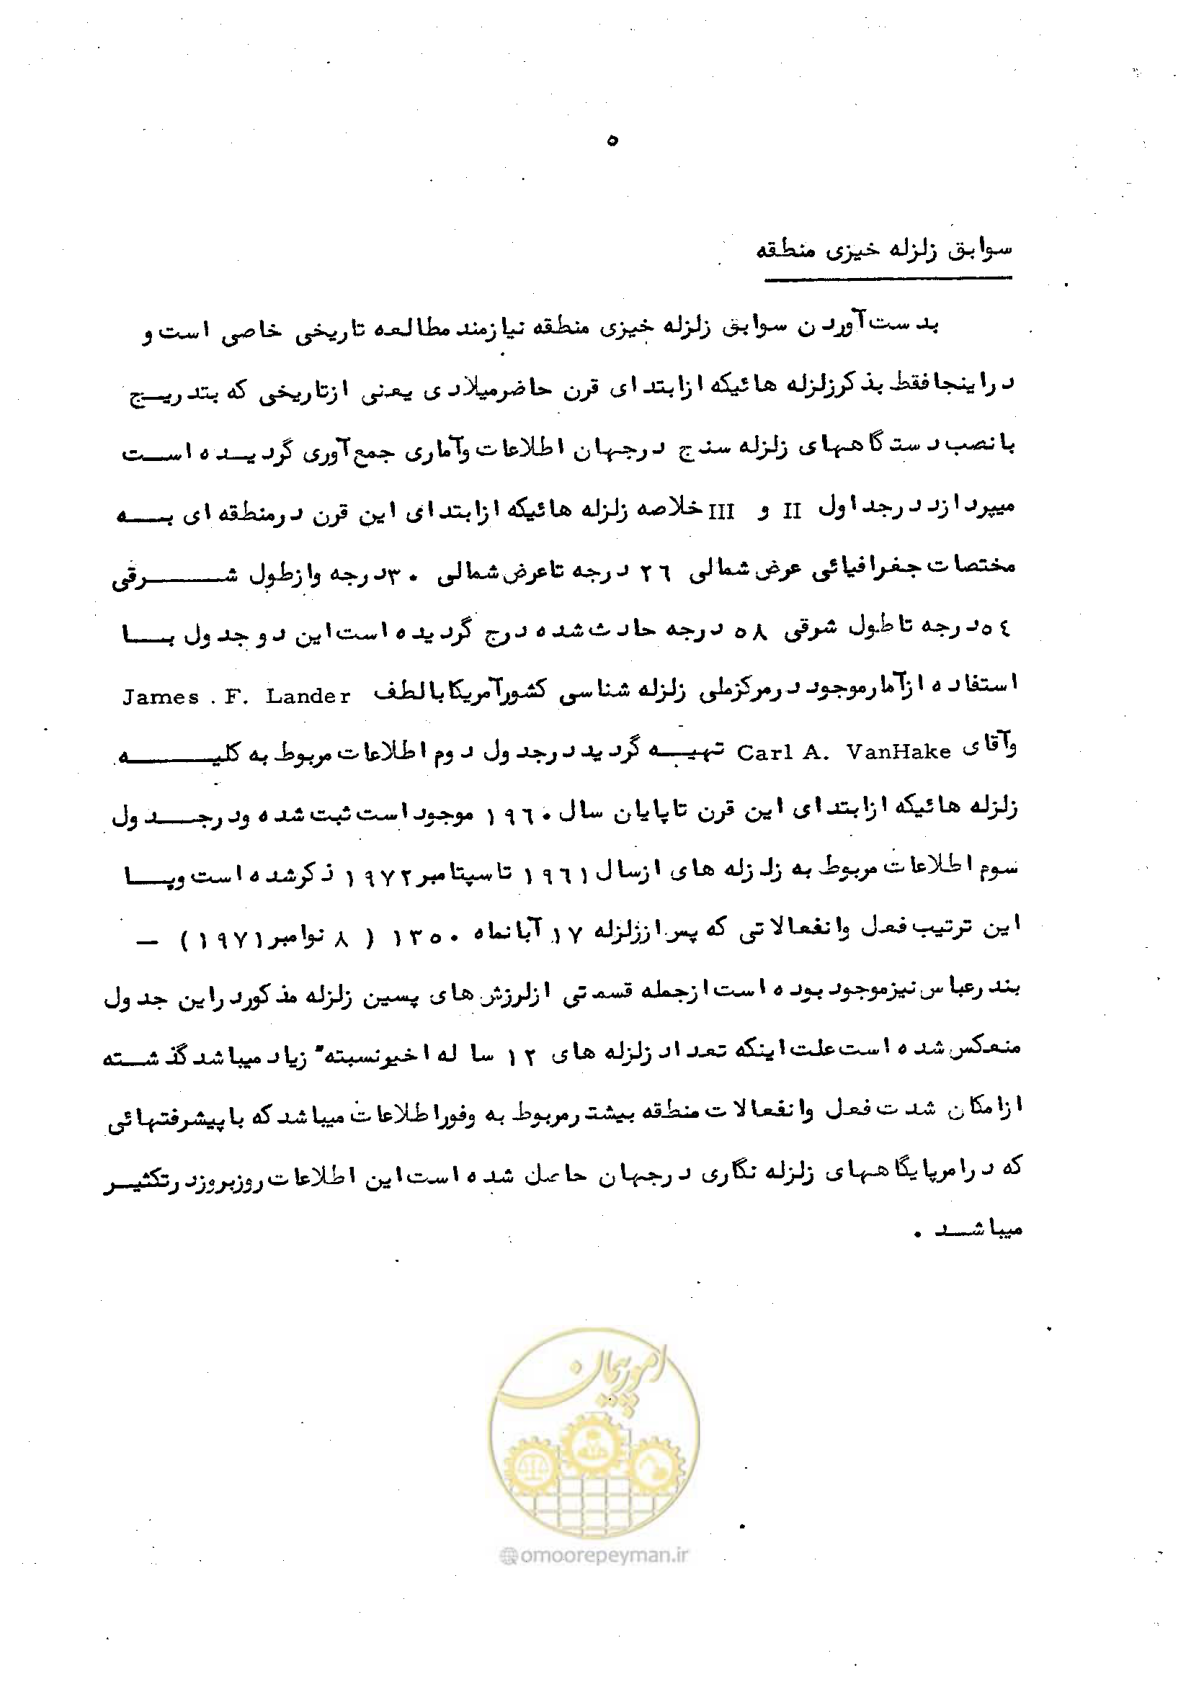 ۵
سوابق زلزله خیزی منطقه
بدست‌آوردن سوابق زلزله خیزی منطقه نیازمند مطالعه تاریخی خاصی است و
دراینجا فقط بذکرزلزله هائیکه ازابتدای قرن حاضرمیلادی یعنی ازتاریخی که بتدریج
بانصب دستگاههای زلزله سنج درجهان اطلاعات وآماری جمع‌آوری گردیده است
میپردازد درجداول II و III خلاصه زلزله هائیکه ازابتدای این قرن درمنطقه ای به
مختصات جغرافیائی عرض شمالی ۲۶ درجه تاعرض شمالی ۳۰درجه وازطول شرقی
۵۴درجه تاطول شرقی ۵۸ درجه حادث شده درج گردیده است این دوجدول با
استفاده ازآمارموجود درمرکزملی زلزله شناسی کشورآمریکا بالطف James . F. Lander
وآقای Carl A. VanHake تهیه گردید درجدول دوم اطلاعات مربوط به کلیه
زلزله هائیکه ازابتدای این قرن تاپایان سال ۱۹۶۰ موجود است ثبت شده ودرجدول
سوم اطلاعات مربوط به زلزله های ازسال ۱۹۶۱ تاسپتامبر ۱۹۷۲ ذکرشده است وبا
این ترتیب فعل وانفعالاتی که پس اززلزله ۱۷ آبانماه ۱۳۵۰ ( ۸ نوامبر ۱۹۷۱ ) –
بندرعباس نیزموجود بوده است ازجمله قسمتی ازلرزش های پسین زلزله مذکوردراین جدول
منعکس شده است علت اینکه تعداد زلزله های ۱۲ ساله اخیرنسبته" زیاد میباشد گذشته
ازامکان شدت فعل وانفعالات منطقه بیشترمربوط به وفوراطلاعات میباشد که باپیشرفتهائی
که درامرپایگاههای زلزله نگاری درجهان حاصل شده است این اطلاعات روزبروزدرتکثیر
میباشد .
امور پیمان
@omoorepeyman.ir